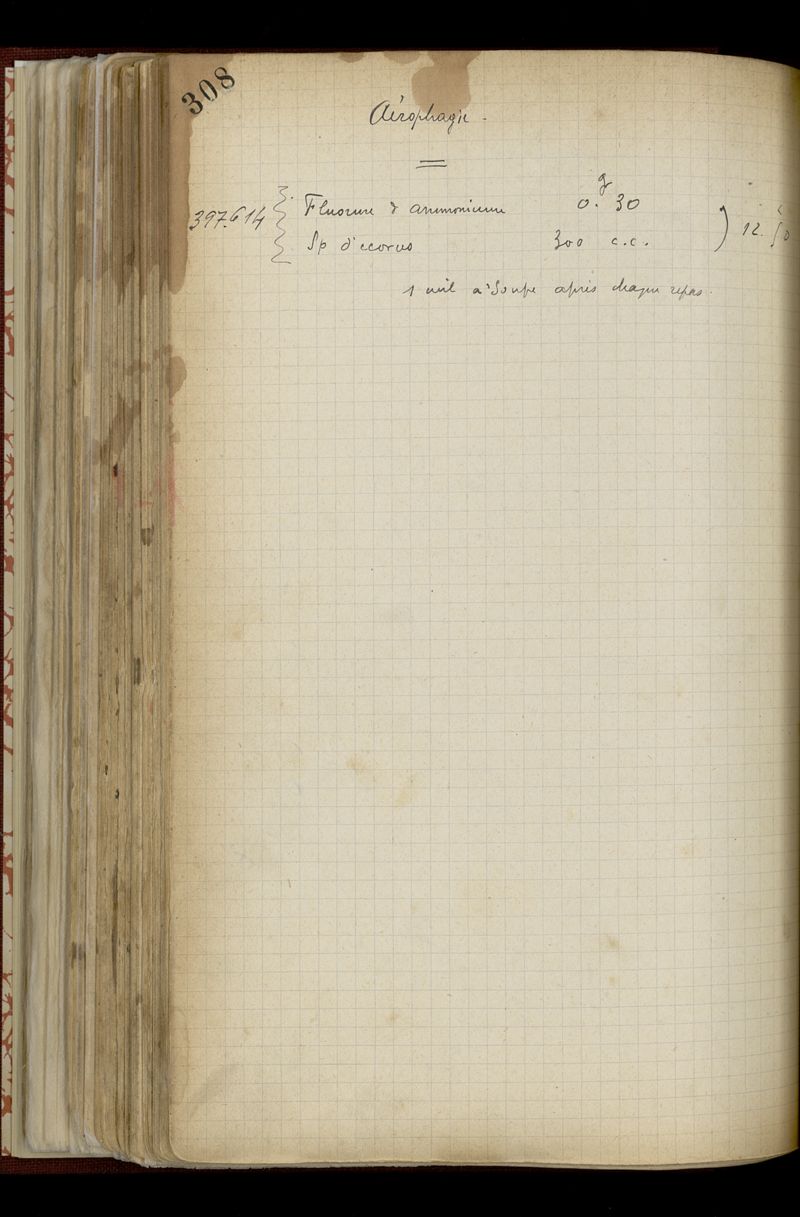 308
Aérophagie -
397.614 Fluorure d' ammonium 0.g 30
Sp d'ecorces 300 c.c. 12. 50
1 cuil a' Soupe après chaque repas.